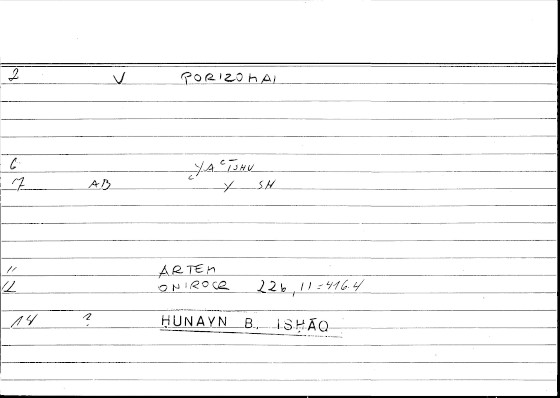 2 V PORIZOMAI
6 YAʿĪSHU
7 AB ʿ Y SH
11 ARTEM
12 ONIROCR 226, 11 = 416.4
14 ? ḤUNAYN B. ISḤĀQ